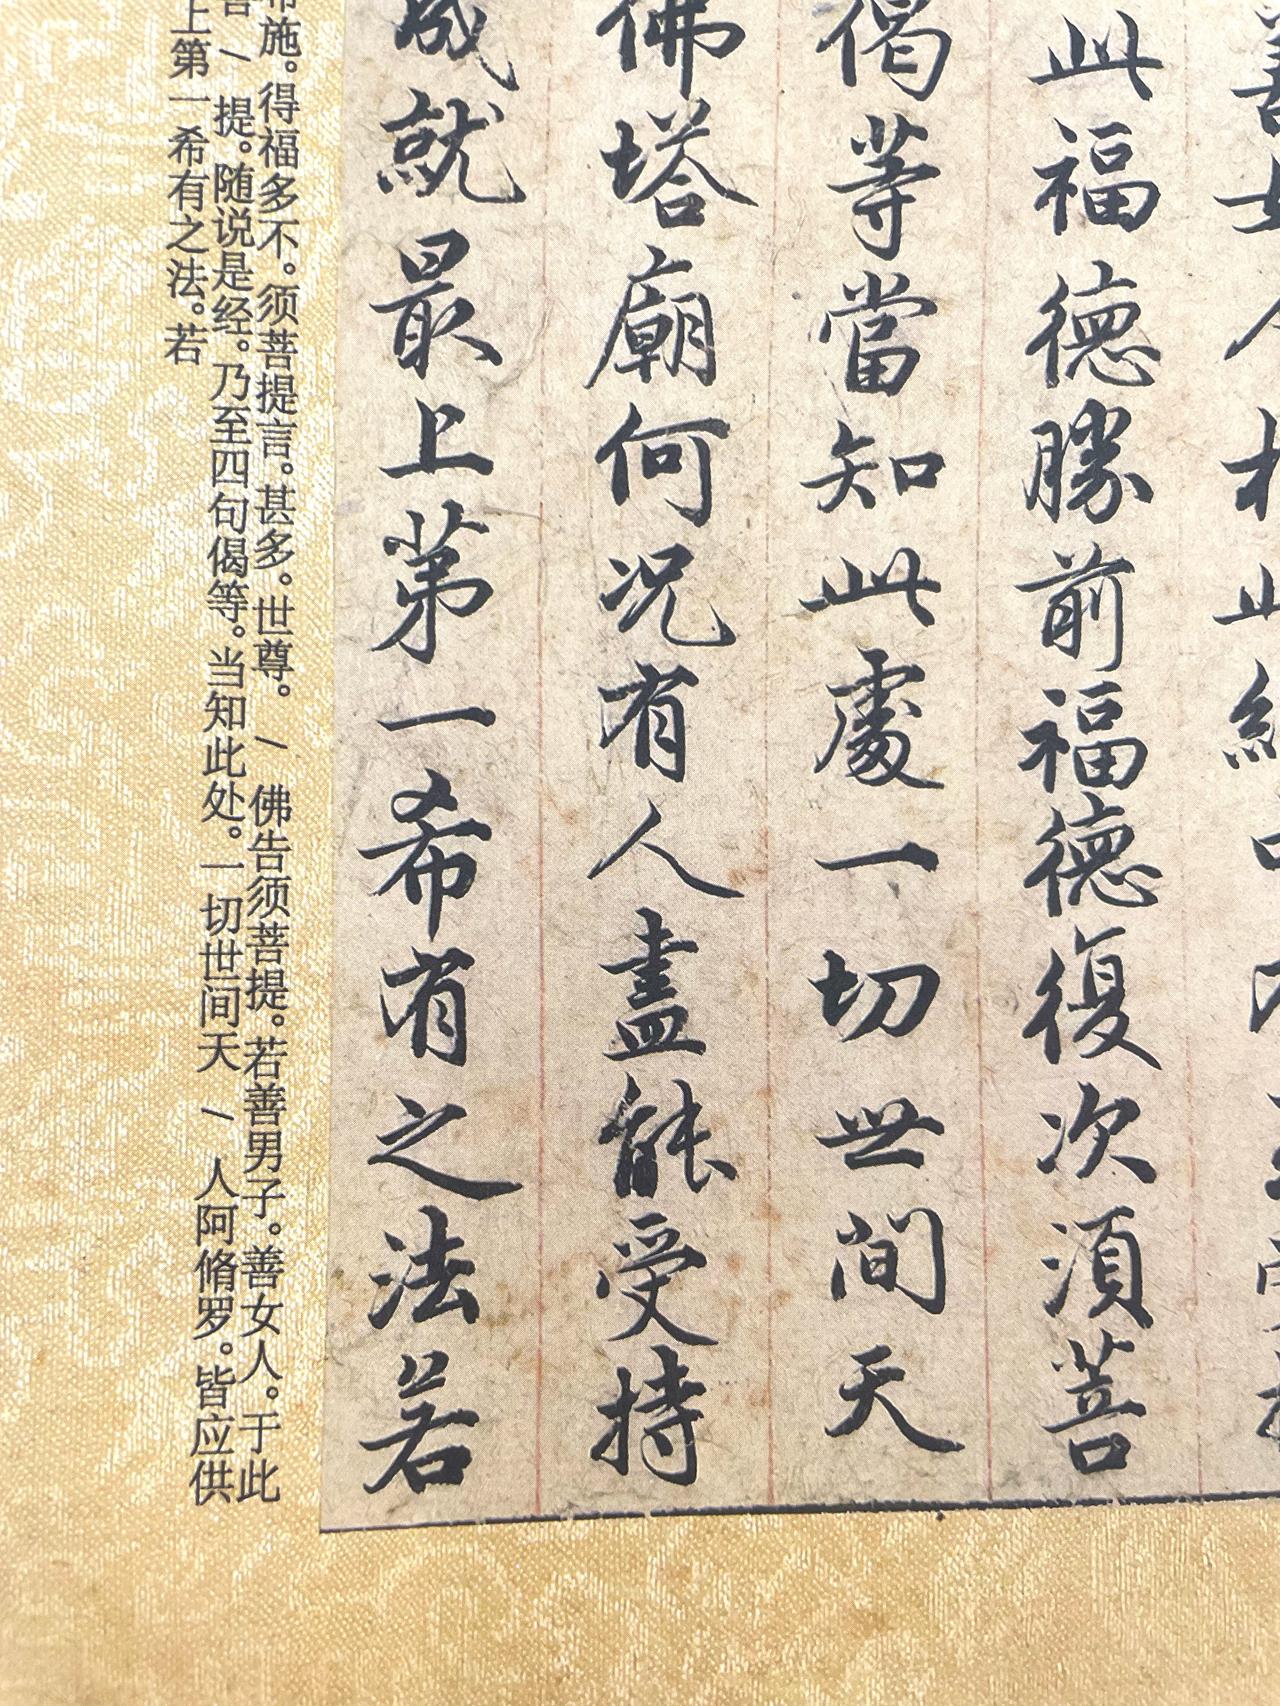 此福德勝前福德復次須菩
偈等當知此處一切世間天
佛塔廟何況有人盡能受持
成就最上第一希有之法若
施。得福多不。须菩提言。甚多。世尊。/佛告须菩提。若善男子。善女人。于此
/提。随说是经。乃至四句偈等。当知此处。一切世间天/人阿脩罗。皆应供
上第一希有之法。若